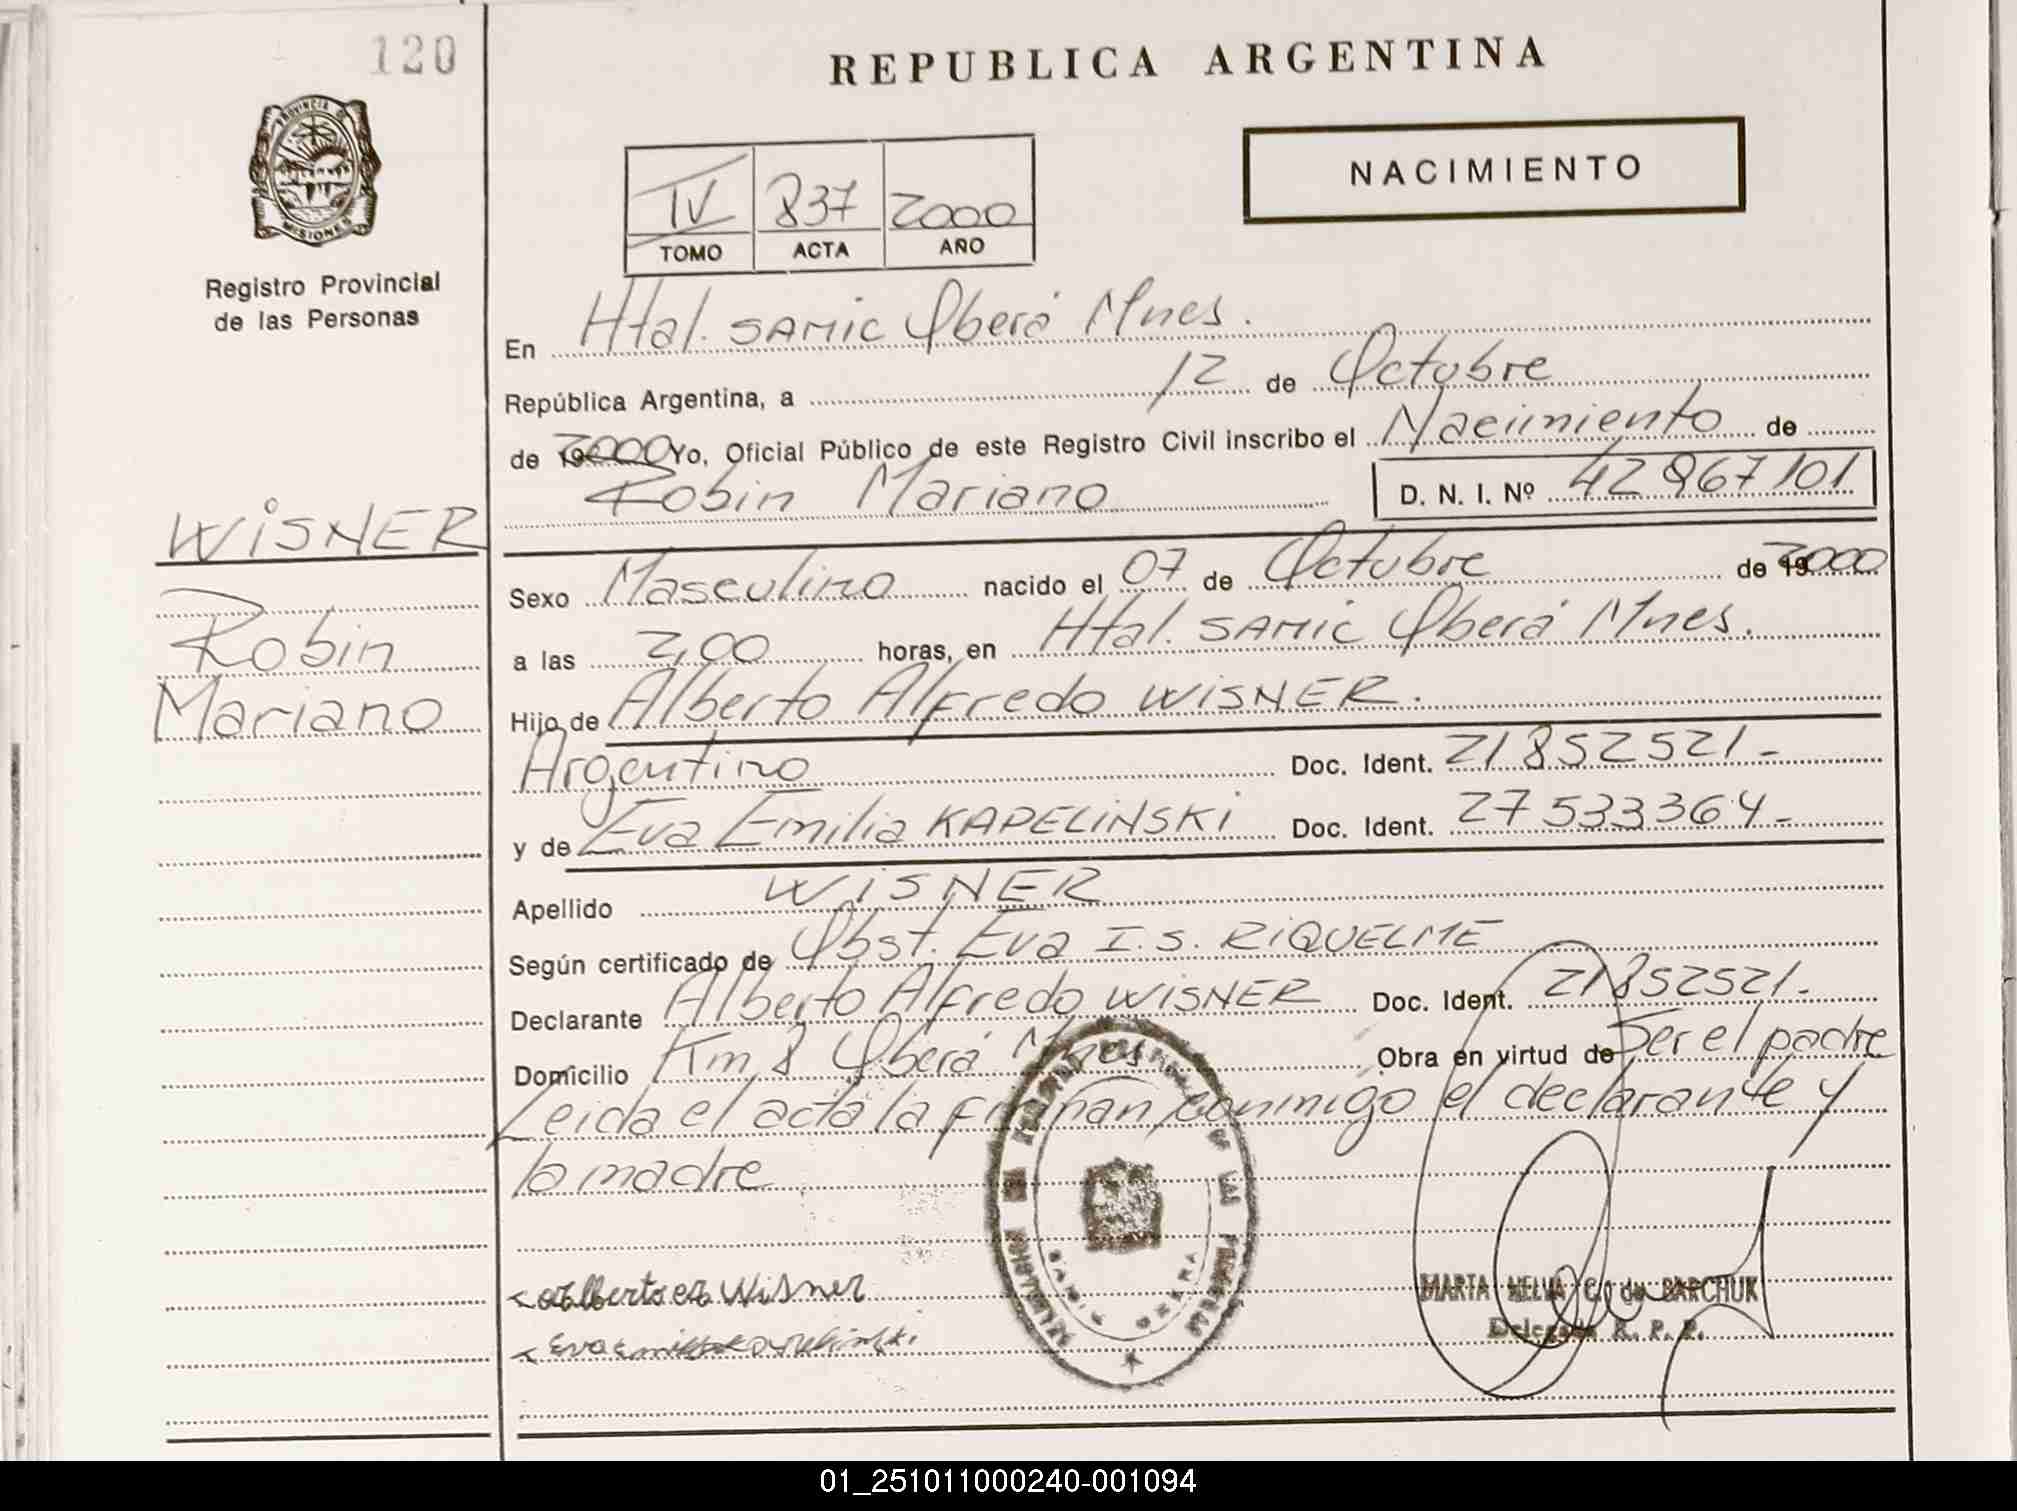 120
REPUBLICA ARGENTINA
PROVINCIA DE
MISIONES
NACIMIENTO
IV 837 2000
TOMO ACTA AÑO
Registro Provincial
de las Personas
En Htal. SAMIC Oberá Mnes.
República Argentina, a 12 de Octubre
de 2000 Yo, Oficial Público de este Registro Civil inscribo el Naciimiento de
Robin Mariano D. N. I. Nº 42867101
WISNER
Robin
Mariano
Sexo Masculino nacido el 07 de Octubre de 2000
a las 2,00 horas, en Htal. SAMIC Oberá Mnes.
Hijo de Alberto Alfredo WISNER.
Argentino Doc. Ident. 21852521-
y de Eva Emilia KAPELINSKI Doc. Ident. 27533364-
Apellido WISNER
Según certificado de Obst. Eva I. S. RIQUELME
Declarante Alberto Alfredo WISNER Doc. Ident. 21852521.
Domicilio Km 8 Oberá Mnes Obra en virtud de Ser el padre
Leida el acta la firman conmigo el declarante y
la madre
Alberto Wisner
Eva
DE LAS
SAMIC OBERA
MARTA NELVA C. de BARCHUK
Delegada R. P. P.
01_251011000240-001094